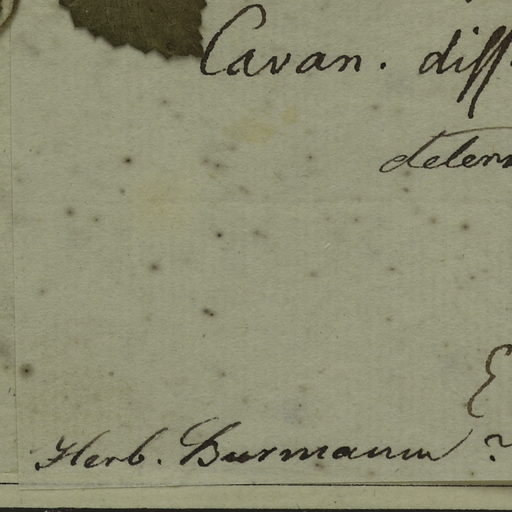 Cavan. diss
determ
E
Herb. Burmann ?